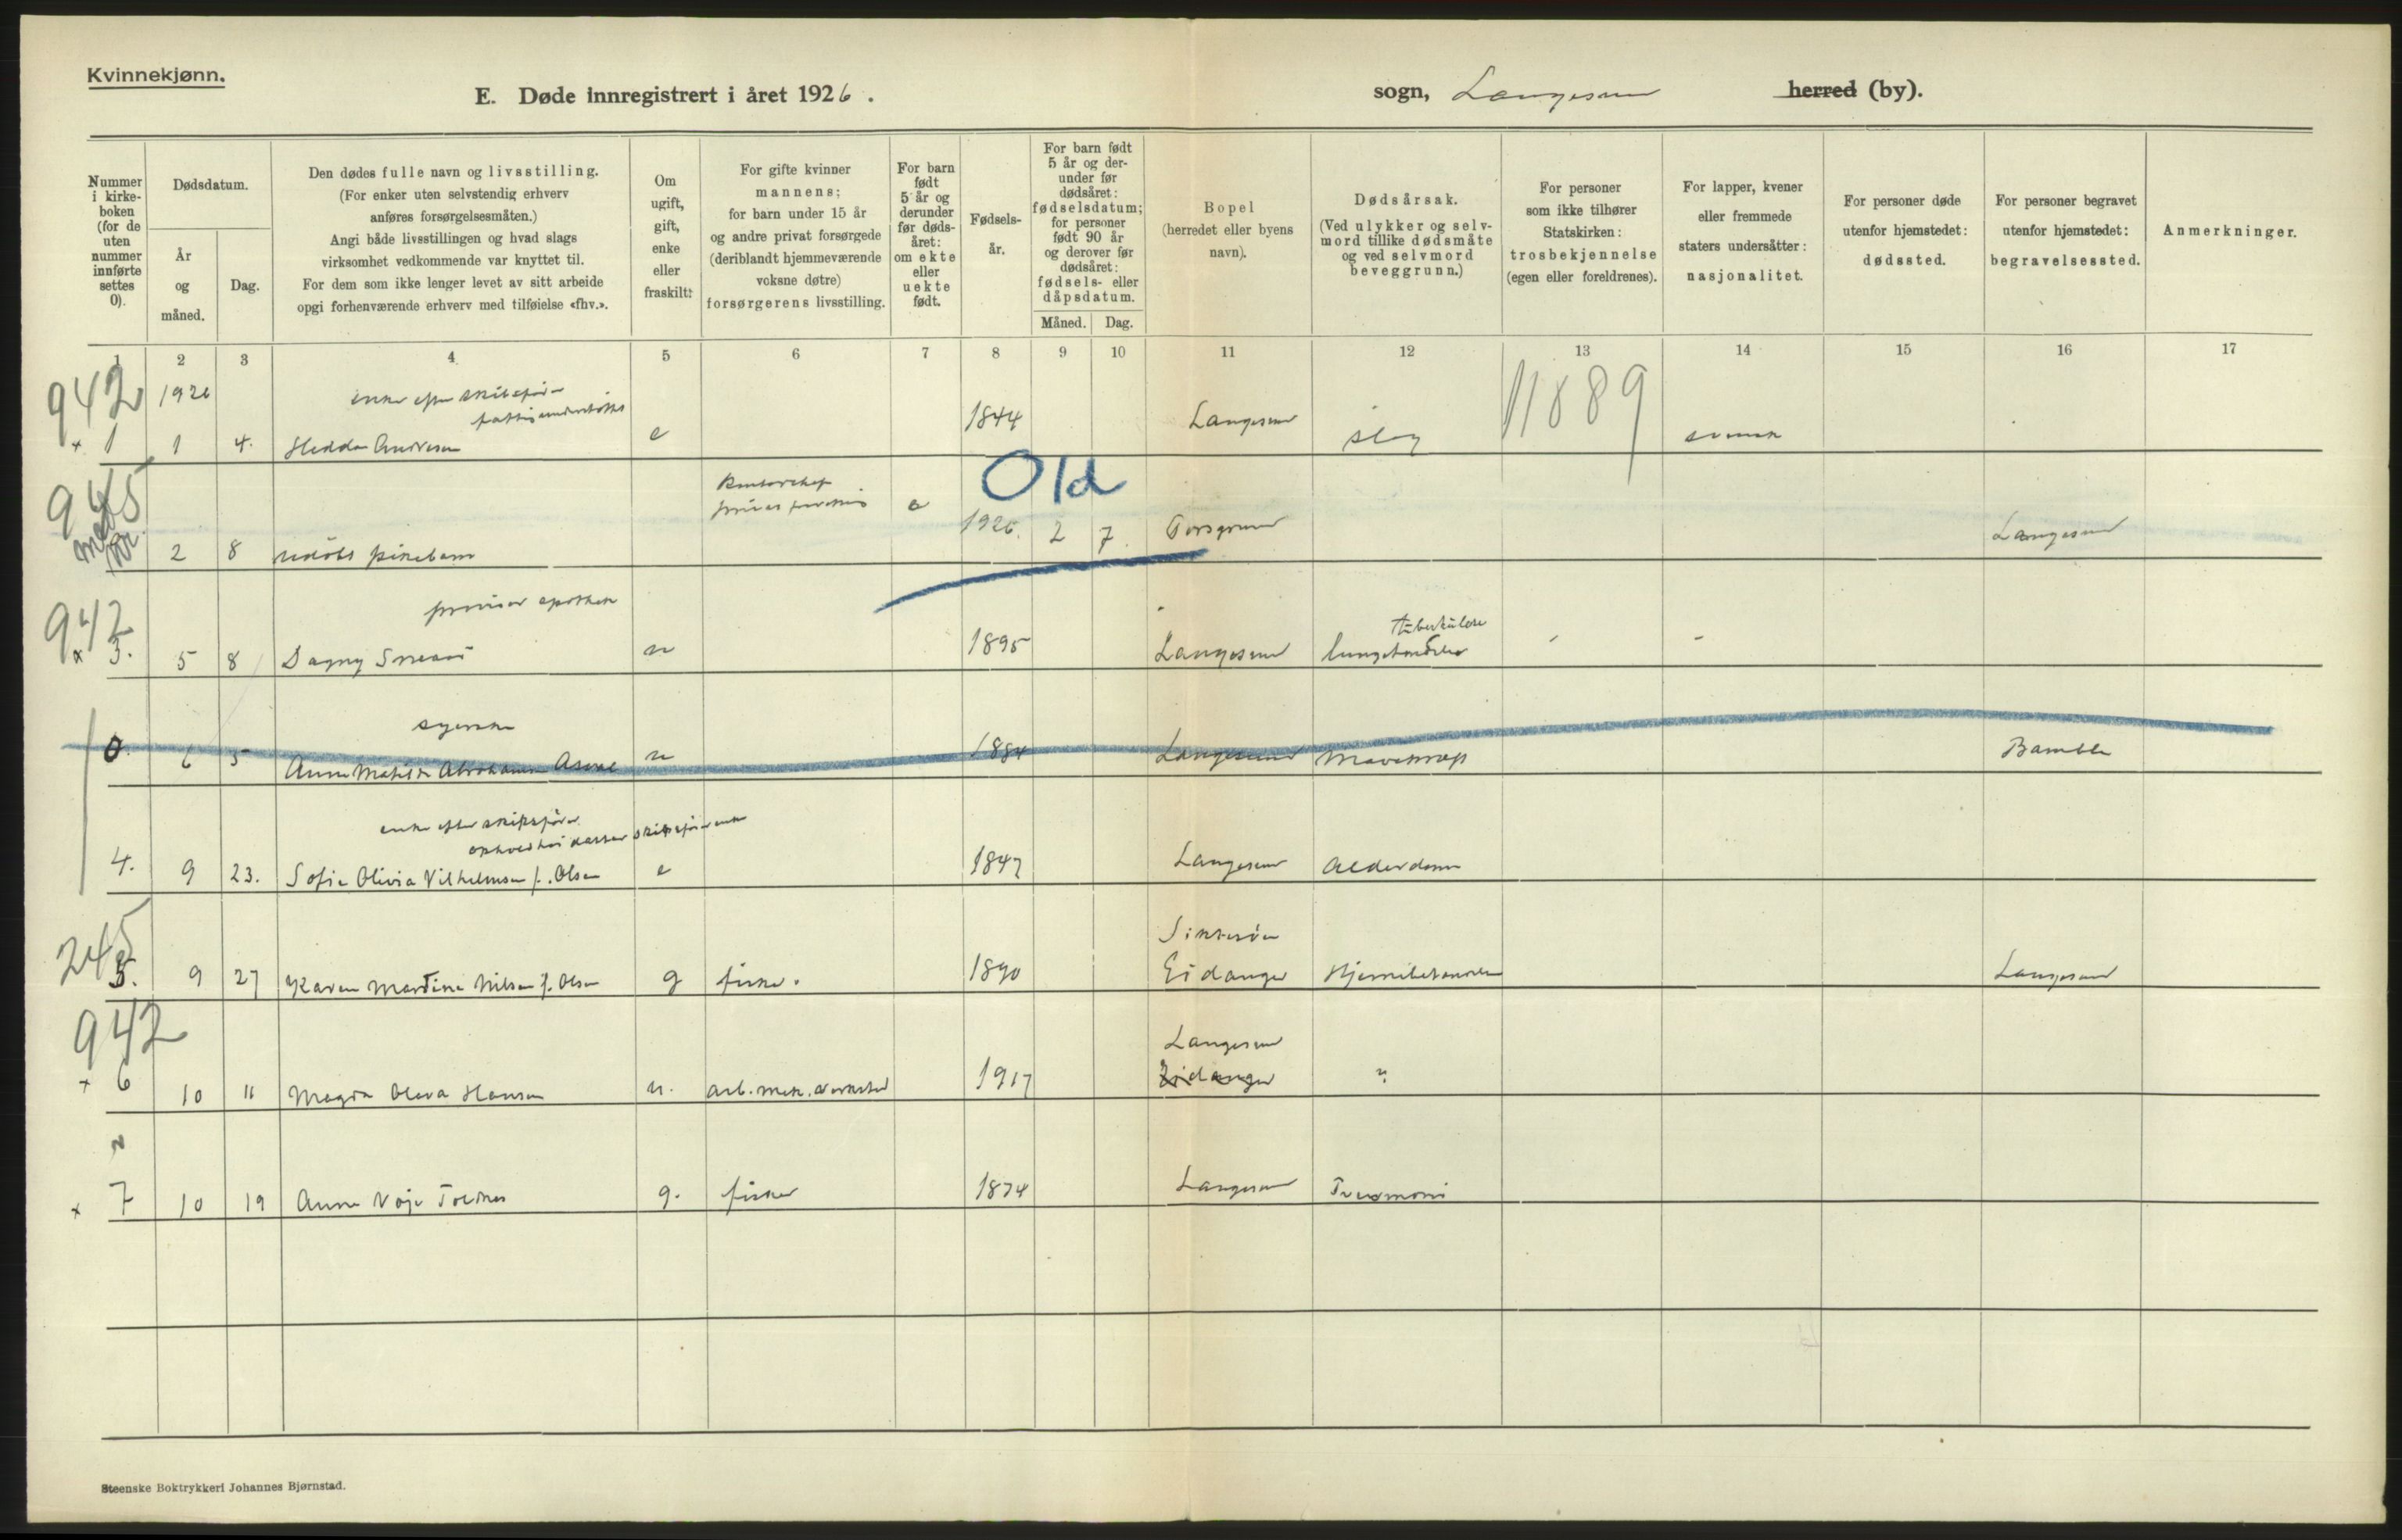 Kvinnekjønn.
E. Døde innregistrert i året 1926.
sogn, Langesund herred (by).
Nummer i kirke- boken (for de uten nummer innførte settes 0).
Dødsdatum.
År og måned.
Dag.
Den dødes fulle navn og livsstilling.
(For enker uten selvstendig erhverv
anføres forsørgelsesmåten.)
Angi både livsstillingen og hvad slags
virksomhet vedkommende var knyttet til.
For dem som ikke lenger levet av sitt arbeide
opgi forhenværende erhverv med tilføielse «fhv.».
Om ugift, gift, enke eller fraskilt?
For gifte kvinner
mannens;
for barn under 15 år
og andre privat forsørgede
(deriblandt hjemmeværende
voksne døtre)
forsørgerens livsstilling.
For barn født 5 år og derunder før døds- året: om ekte eller uekte født.
Fødsels- år.
For barn født 5 år og der- under før dødsåret: fødselsdatum; for personer født 90 år og derover før dødsåret: fødsels- eller dåpsdatum.
Måned. Dag.
Bopel
(herredet eller byens
navn).
Dødsårsak.
(Ved ulykker og selv-
mord tillike dødsmåte
og ved selvmord
beveggrunn.)
For personer
som ikke tilhører
Statskirken:
trosbekjennelse
(egen eller foreldrenes).
For lapper, kvener
eller fremmede
staters undersåtter:
nasjonalitet.
For personer døde
utenfor hjemstedet:
dødssted.
For personer begravet
utenfor hjemstedet:
begravelsessted.
Anmerkninger.
1 2 3 4 5 6 7 8 9 10 11 12 13 14 15 16 17
942 1926 enke efter skibsfører
x 1 1 4. Hedda Andresen e 1844 Langesund slag 11889 svensk
965 Old
2 8 udøbt pikebarn e 1926. 2 7. Porsgrunn Langesund
942 provisor apothek
x 3. 5 8 Dagny u 1895 Langesund tuberkuløse
syerske
0. 6 5 Anne Matilde Abrahamsen u 1884 Langesund Bamble
enke efter skibsfører
4. 9 23. Sofie Olivia Vilhelmsen f. Olsen e 1847 Langesund Alderdom
245
5. 9 27 Karen Martine Nilsen f. Olsen g fisker. 1890 Eidanger Langesund
942 Langesund
x 6 10 11 Magda Olava Hansen u. arb. mek. verksted 1917 Eidanger "
x 7 10 19 Anne g. fisker 1874 Langesund
Steenske Boktrykkeri Johannes Bjørnstad.